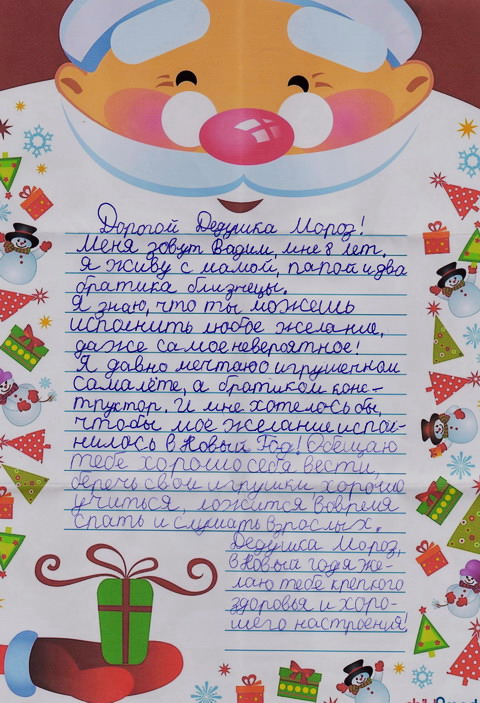 Дорогой Дедушка Мороз!
Меня зовут Вадим, мне 8 лет.
Я живу с мамой, папой и два
братика близнецы.
Я знаю, что ты можешь
исполнить любое желание,
даже самое невероятное!
Я давно мечтаю о игрушечном
самалёте, а братиком конс-
труктор. И мне хотелось бы,
чтобы мое желание испол-
нилось в Новый Год! Обещаю
тебе хорошо себя вести,
беречь свои игрушки, хорошо
учиться, ложится вовремя
спать и слушать взрослых.
Дедушка Мороз,
в Новый год я же-
лаю тебе крепкого
здоровья и хоро-
шего настроения!